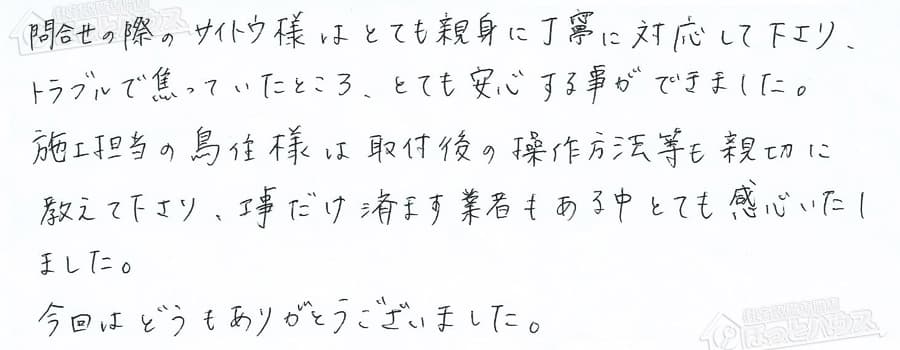 問合せの際のサイトウ様はとても親身に丁寧に対応して下さり、
トラブルで焦っていたところ、とても安心する事ができました。
施工担当の鳥住様は取付後の操作方法等も親切に
教えて下さり、工事だけ済ます業者もある中とても感心いたし
ました。
今回はどうもありがとうございました。